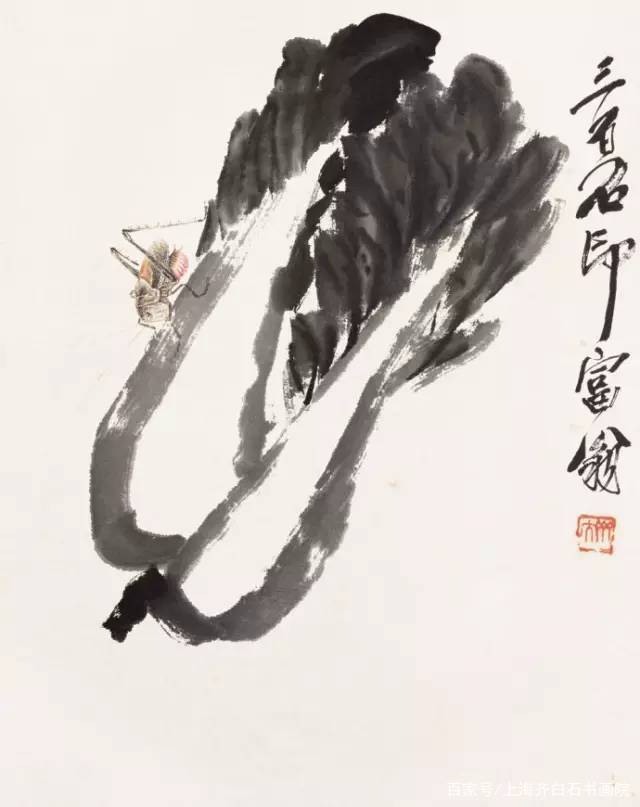 三百石印富翁
百家号/上海齐白石书画院